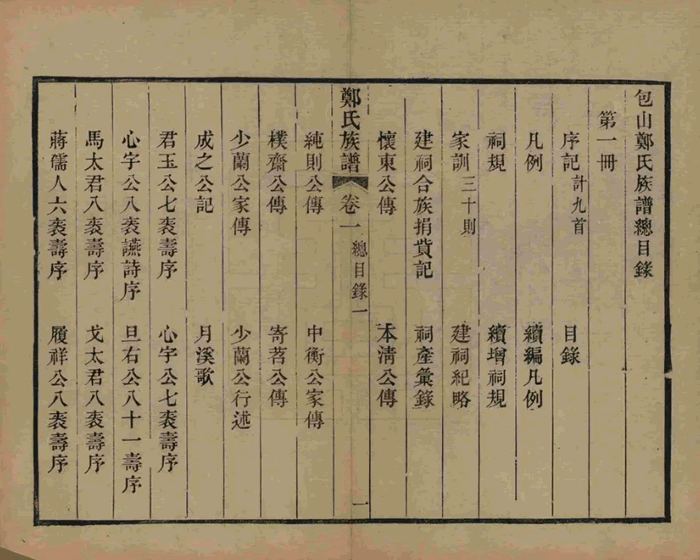 包山鄭氏族譜總目錄
第一冊
序記 計九首 目錄
凡例 續編凡例
祠規 續增祠規
家訓 三十則 建祠紀略
建祠合族捐貲記 祠產彙錄
懷東公傳 本淸公傳
鄭氏族譜 卷一 總目錄一 一
純則公傳 中衡公家傳
樸齋公傳 寄茗公傳
少蘭公家傳 少蘭公行述
成之公記 月溪歌
君玉公七袠壽序 心字公七袠壽序
心字公八袠讌詩序 旦右公八十一壽序
馬太君八袠壽序 戈太君八袠壽序
蔣儒人六袠壽序 履祥公八袠壽序